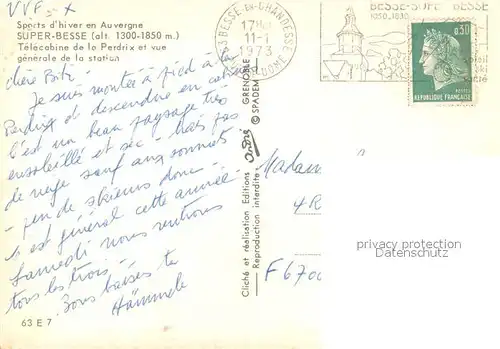 VVF
Sports d'hiver en Auvergne
SUPER-BESSE (alt. 1300-1850 m.)
Télécabine de la Perdrix et vue
générale de la station
Chère
Je suis montée à pied à la
Perdrix et descendue en
C'est un beau paysage très
ensoleillé et sec - mais pas
de neige sauf aux sommets
- peu de skieurs donc -
c'est général cette année -
Samedi nous rentrons
tous les trois -
Bons baisers
63 E 7
63 BESSE-EN-CHANDESSE
17H
11-1
1973
PUY DE DOME
BESSE-SUPER BESSE
1050-1850
soleil
ski
santé
0,30
POSTES
REPUBLIQUE FRANÇAISE
GRENOBLE
© SPADEM
André
Cliché et réalisation Editions
Reproduction interdite
Madame
4 R
F 6700
privacy protection
Datenschutz